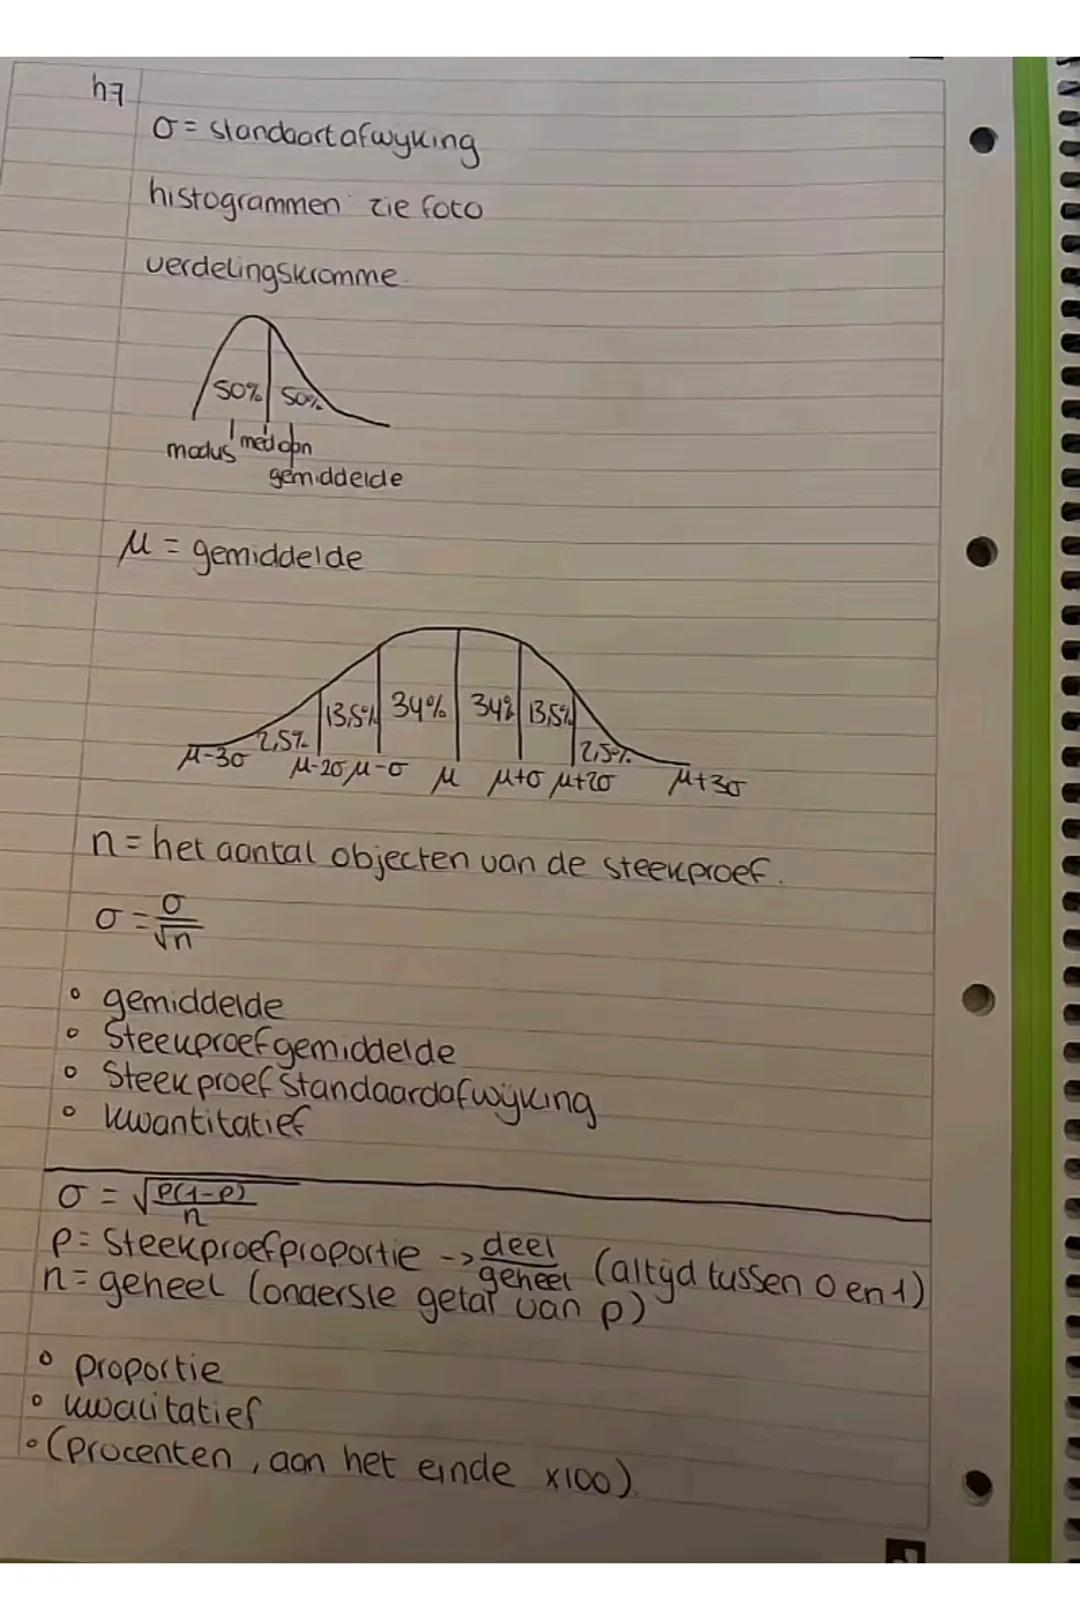 h7
σ = standaartafwijking
histogrammen zie foto
verdelingskromme.
50% 50%
modus mediaan
gemiddelde
μ = gemiddelde
2,5% 13,5% 34% 34% 13,5% 2,5%
μ-3σ μ-2σ μ-σ μ μ+σ μ+2σ μ+3σ
n = het aantal objecten van de steekproef.
σ = σ/√n
° gemiddelde
° Steekproefgemiddelde
° Steekproefstandaardafwijking
° kwantitatief
σ = √(p(1-p)/n)
p = Steekproefproportie -> deel/geheel (altijd tussen 0 en 1)
n = geheel (onderste getal van p)
° proportie
° kwalitatief
° (procenten, aan het einde x100).